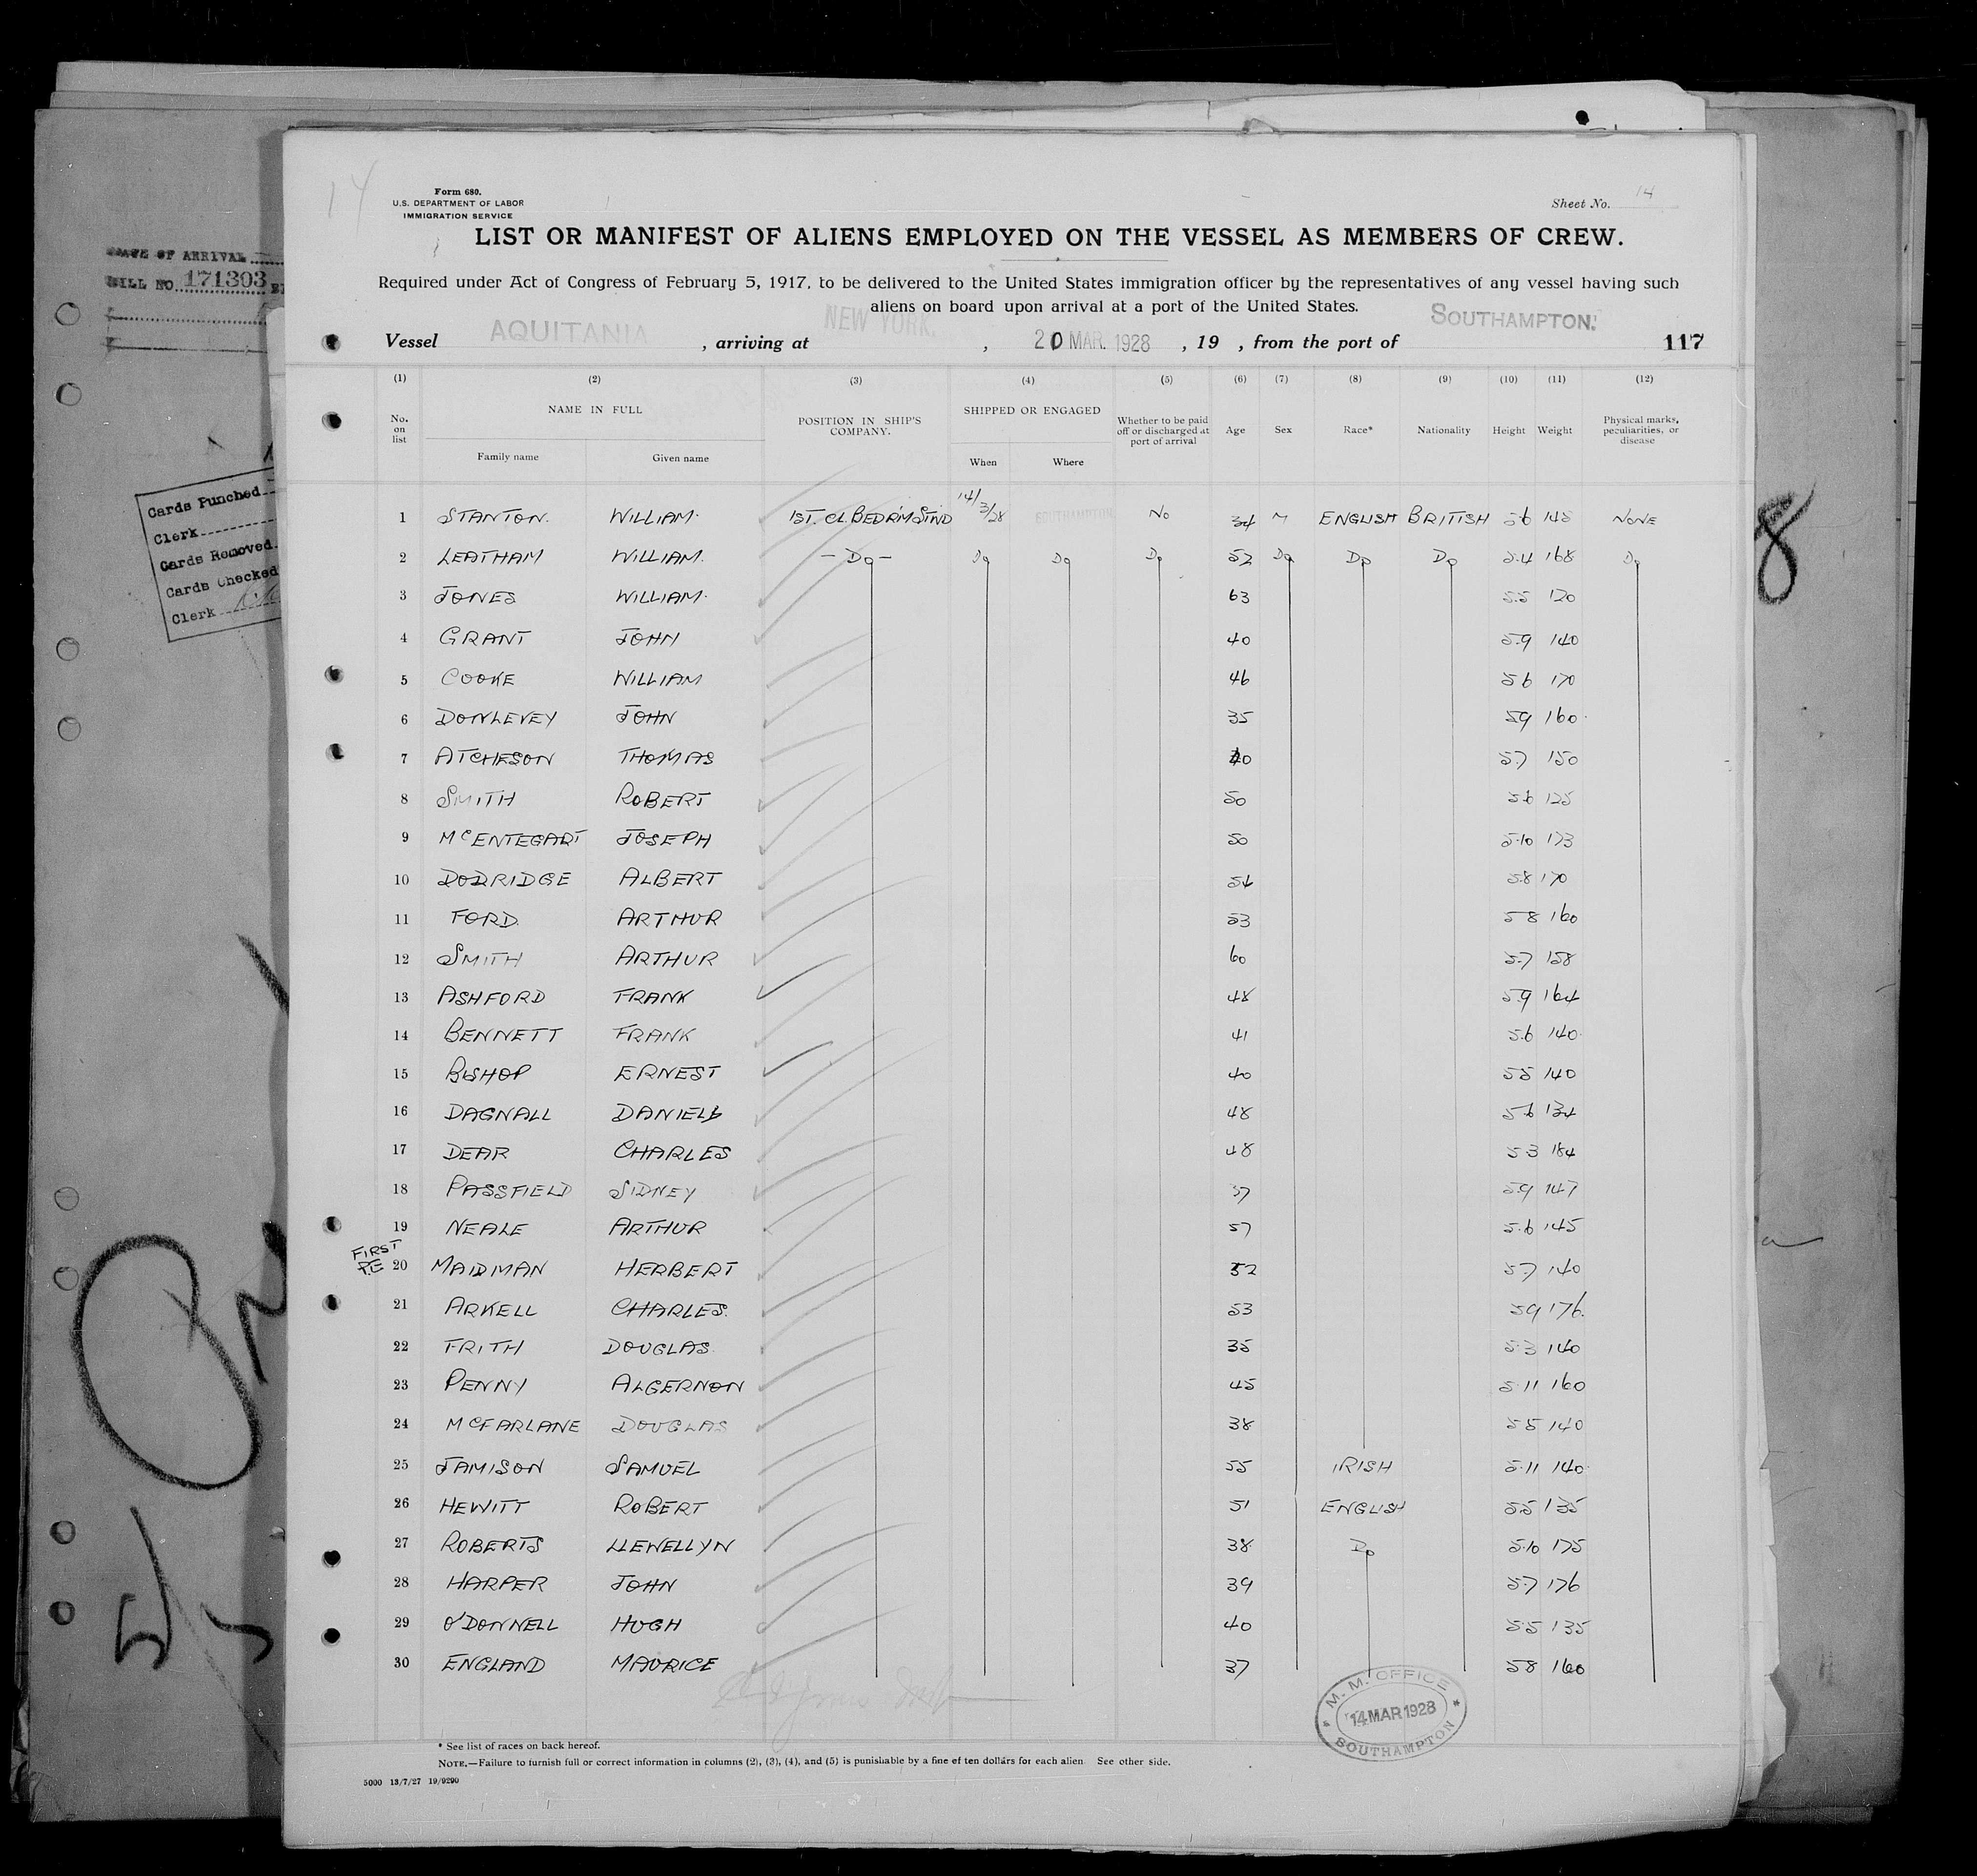 14
Form 680.
U.S. DEPARTMENT OF LABOR
IMMIGRATION SERVICE
Sheet No. 14
LIST OR MANIFEST OF ALIENS EMPLOYED ON THE VESSEL AS MEMBERS OF CREW.
Required under Act of Congress of February 5, 1917, to be delivered to the United States immigration officer by the representatives of any vessel having such
aliens on board upon arrival at a port of the United States.
Vessel AQUITANIA, arriving at NEW YORK., 20 MAR. 1928, 19 , from the port of SOUTHAMPTON. 117
(1) (2) (3) (4) (5) (6) (7) (8) (9) (10) (11) (12)
No. on list NAME IN FULL POSITION IN SHIP'S COMPANY. SHIPPED OR ENGAGED Whether to be paid off or discharged at port of arrival Age Sex Race* Nationality Height Weight Physical marks, peculiarities, or disease
Family name Given name When Where
1 STANTON. WILLIAM. 1ST. CL BEDRM STWD 14/3/28 SOUTHAMPTON No 34 M ENGLISH BRITISH 5 6 148 NONE
2 LEATHAM WILLIAM. - Do - Do Do Do 52 Do Do Do 5.4 168 Do
3 JONES WILLIAM. 63 5.5 120
4 GRANT JOHN 40 5.9 140
5 COOKE WILLIAM 46 5 6 170
6 DONLEVEY JOHN 35 5 9 160
7 ATCHESON THOMAS 40 5.7 150
8 SMITH ROBERT 50 5.6 125
9 McENTEGART JOSEPH 50 5.10 173
10 DODRIDGE ALBERT 54 5.8 170
11 FORD. ARTHUR 53 5 8 160
12 SMITH ARTHUR 60 5.7 158
13 ASHFORD FRANK 48 5.9 164
14 BENNETT FRANK 41 5.6 140
15 BISHOP ERNEST 40 5 5 140
16 DAGNALL DANIEL 48 5 6 134
17 DEAR CHARLES 48 5 3 184
18 PASSFIELD SIDNEY 37 5.9 147
19 NEALE ARTHUR 57 5.6 145
FIRST P.E 20 MAIDMAN HERBERT 52 5.7 140
21 ARKELL CHARLES. 53 5 9 176.
22 FRITH DOUGLAS. 35 5.3 140
23 PENNY ALGERNON 45 5.11 160
24 McFARLANE DOUGLAS 38 5 5 140
25 JAMISON SAMUEL 55 IRISH 5.11 140
26 HEWITT ROBERT 51 ENGLISH 5.5 135
27 ROBERTS LLEWELLYN 38 Do 5.10 175
28 HARPER JOHN 39 5.7 176
29 O'DONNELL HUGH 40 5.5 135
30 ENGLAND MAURICE 37 5 8 160
M. M. OFFICE
14 MAR 1928
SOUTHAMPTON
* See list of races on back hereof.
NOTE.—Failure to furnish full or correct information in columns (2), (3), (4), and (5) is punishable by a fine of ten dollars for each alien See other side.
5000 13/7/27 19/9290
OF ARRIVAL
BILL NO. 171303
Cards Punched
Clerk
Cards Removed
Cards Checked
Clerk
8